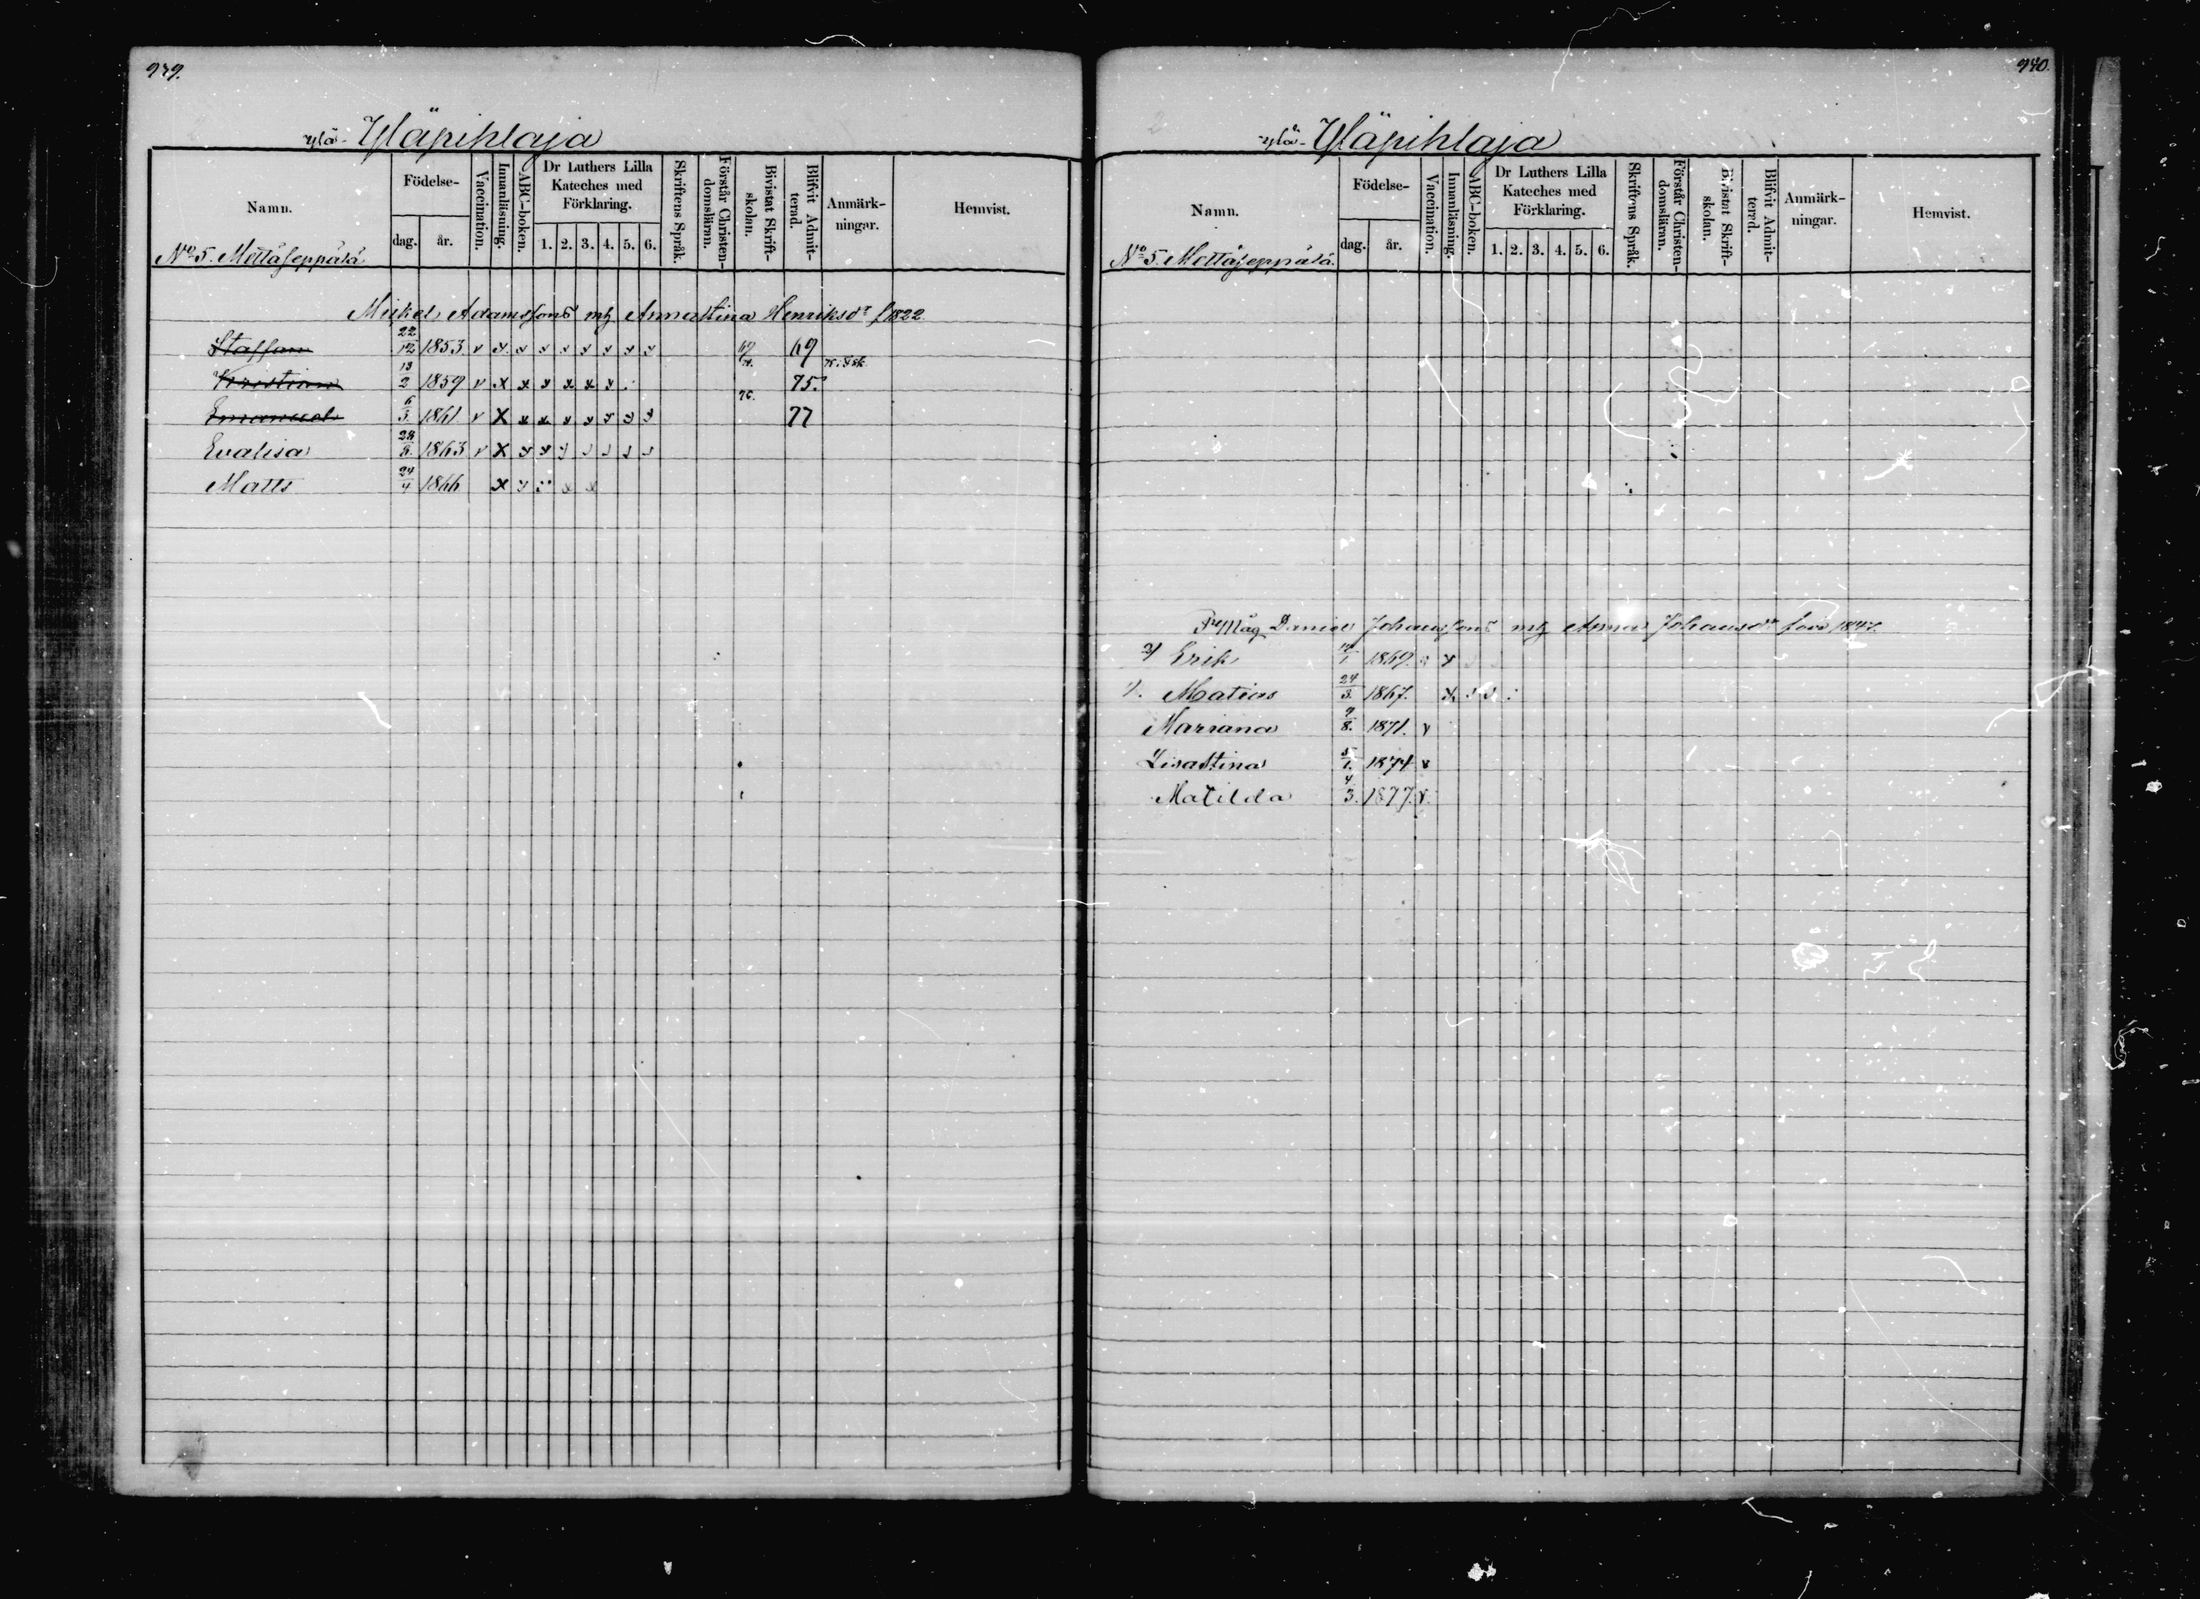 939.
Ylä- Yläpihlaja
Namn.
Födelse-
dag. år.
Vaccination.
Innanläsning.
ABC-boken.
Dr Luthers Lilla Kateches med Förklaring.
1. 2. 3. 4. 5. 6.
Skriftens Språk.
Förstår Christendomsläran.
Bivistat Skriftskolan.
Blifvit Admitterad.
Anmärkningar.
Hemvist.
No 5. Mettäseppälä
Mickel Adamssons mh Annastina Henriksdr f 1822
Staffan 22/12 1853. v x x x x x x x x 69
Kristian 13/2 1859 v x x x x x x 75.
Emanuel 6/3. 1861 v x x x x x x x x 76. 77
Evalisa 1863 v x x x
Matts 24/4 1866 x x x x
940.
Ylä- Yläpihlaja
Namn.
Födelse-
dag. år.
Vaccination.
Innanläsning.
ABC-boken.
Dr Luthers Lilla Kateches med Förklaring.
1. 2. 3. 4. 5. 6.
Skriftens Språk.
Förstår Christendomsläran.
Bivistat Skriftskolan.
Blifvit Admitterad.
Anmärkningar.
Hemvist.
No 5. Mettäseppälä.
Daniel Johanssons mh Anna Johansdr
2) Erik 1869. x
1. Matias 24/3. 1867. x
Mariana 9/8. 1871. v
Lisastina 5/1. 1874 v
Matilda 4/3. 1877. v.